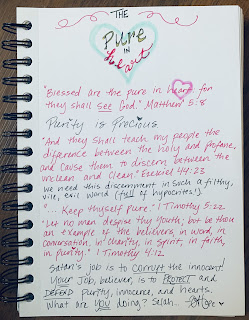 THE
Pure
IN
Heart
"Blessed are the pure in heart for
they shall see God." Matthew 5:8
Purity is Precious
"And they shall teach my people the
difference between the holy and profane,
and cause them to discern between the
unclean and clean." Ezekiel 44:23
We need this discernment in such a filthy,
vile, evil world (full of hypocrites!).
"... Keep thyself pure." 1 Timothy 5:22
"Let no man despise thy youth; but be thou
an example of the believers, in word, in
conversation, in charity, in spirit, in faith,
in purity." 1 Timothy 4:12
Satan's job is to CORRUPT the innocent!
Your job, believer, is to PROTECT and
DEFEND purity, innocence, and hearts.
What are YOU doing? Selah...